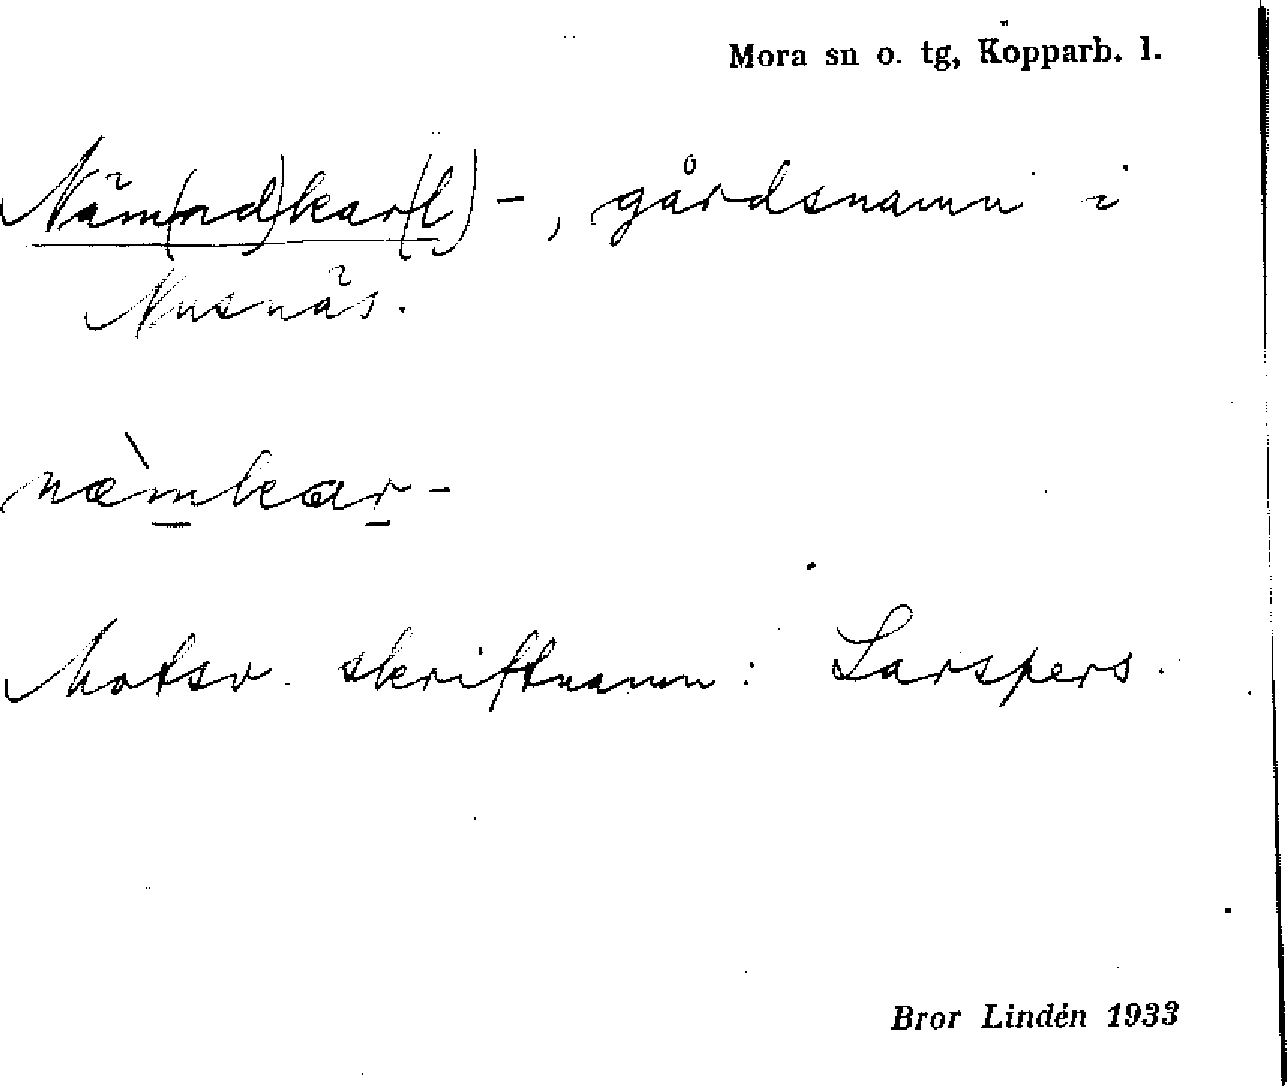 Mora sn o. tg, Kopparb. l.
Näm(nd)kar(l)-, gårdsnamn i
Nusnäs.
næ̀mkar-
Motsv. skriftnamn: Larspers.
Bror Lindén 1933